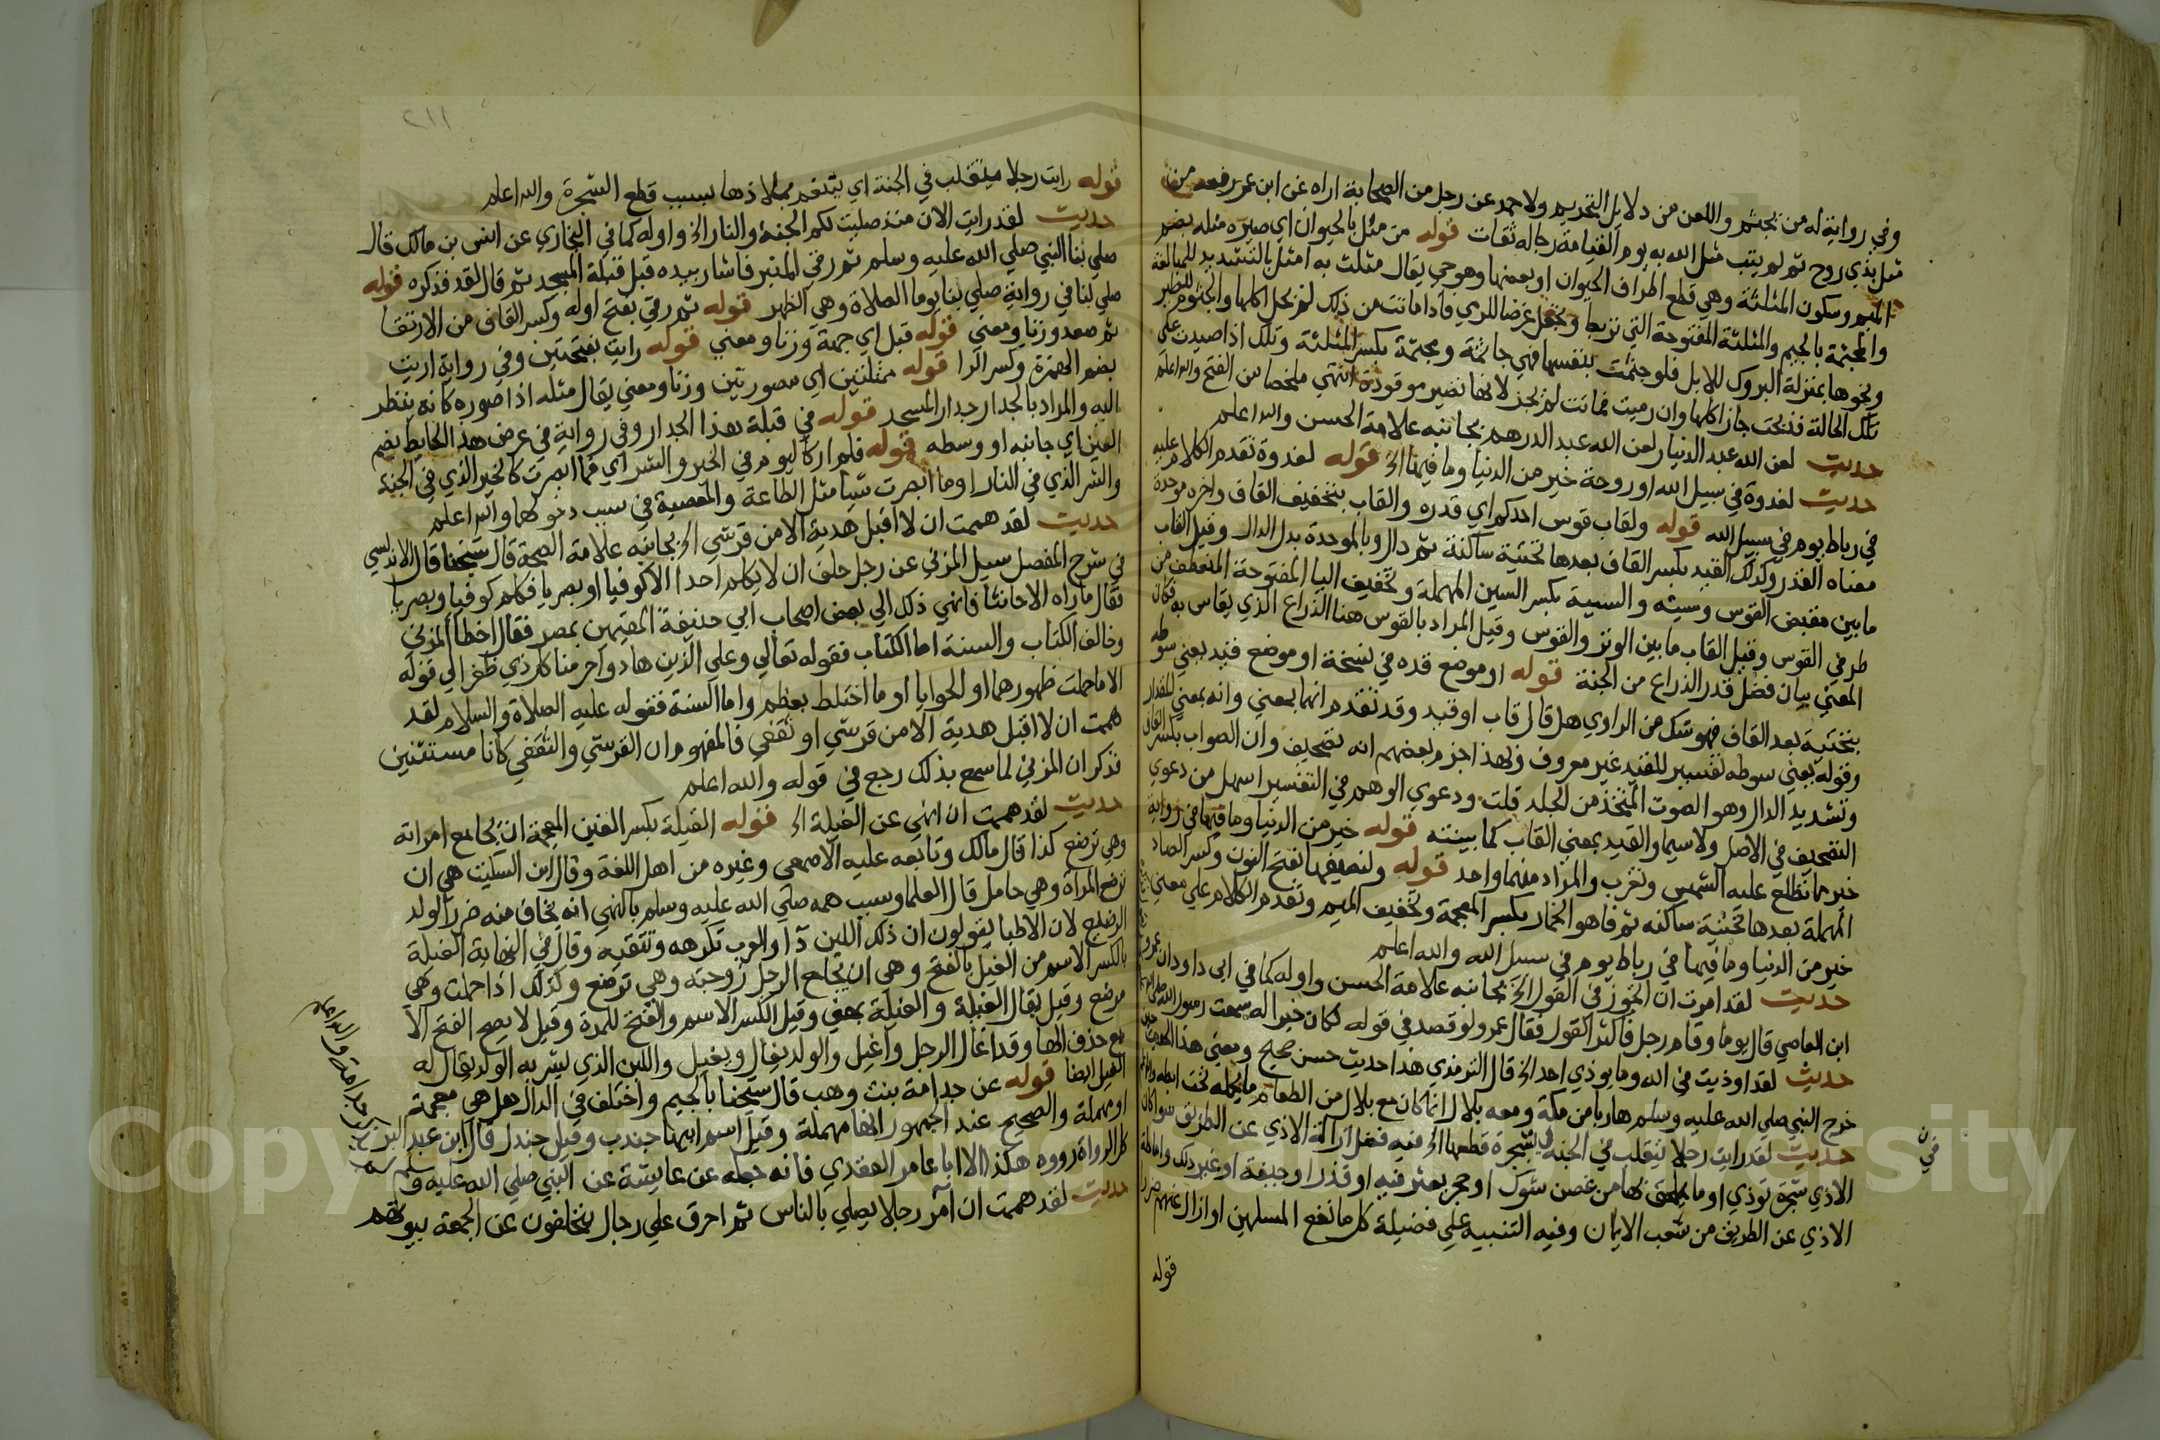 وفي رواية له من تجثم واللعن من دلايل التحريم ولاحمد عن رجل من الصحابة اراه عن ابن عمر رفعه من
مثل بذي روح ثم لم يتب مثل الله به يوم القيامة رجاله ثقات قوله من مثل بالحيوان اي صيره مثله بضم
الميم وسكون المثلثة وهي قطع اطراف الحيوان او بعضها وهو حي يقال مثلت به امثل بالتشديد للمبالغة
والمجثمة بالجيم والمثلثة المفتوحة التي تربط وتجعل غرضا للرمي فاذا ماتت من ذلك لم يحل اكلها والجثوم للطير
ونحوها بمنزلة البروك للابل فلو جثمت بنفسها فهي جاثمة ومجثمة بكسر المثلثة وتلك اذا صيدت على
تلك الحالة فذبحت جاز اكلها وان رميت فماتت لم يجز لانها تصير موقوذة انتهي ملخصا من الفتح والله اعلم
حديث لعن الله عبد الدينار لعن الله عبد الدرهم بجانبه علامة الحسن والله اعلم
حديث لغدوة في سبيل الله او روحة خير من الدنيا وما فيها الخ قوله لغدوة تقدم الكلام عليه
في رباط يوم في سبيل الله قوله ولقاب قوس احدكم اي قدره والقاب بتخفيف القاف واخره موحدة
معناه القدر وكذلك القيد بكسر القاف بعدها تحتية ساكنة ثم دال وبالموحدة بدل الدال وقيل القاب
ما بين مقبض القوس وسيته والسية بكسر السين المهملة وتخفيف اليا المفتوحة المنعطف من
طرفي القوس وقيل القاب ما بين الوتر والقوس وقيل المراد بالقوس هنا الذراع الذي يقاس به فكان
المعني بيان فضل قدر الذراع من الجنة قوله او موضع قده في نسخة او موضع قيد يعني سوطه
بتحتية بعد القاف فهو شك من الراوي هل قال قاب او قيد وقد تقدم انهما بمعني وانه بمعني المقدار
وقوله يعني سوطه تفسير للقيد غير معروف ولهذا جزم بعضهم انه تصحيف وان الصواب بكسر القاف
وتشديد الدال وهو الصوت المتخذ من الجلد قلت ودعوي الوهم في التفسير اسهل من دعوي
التصحيف في الاصل ولاسيما والقيد بمعني القاب كما بينته قوله خير من الدنيا وما فيها في رواية
خير مما تطلع عليه الشمس وتغرب والمراد منهما واحد قوله ولنصيفها بفتح النون وكسر الصاد
المهملة بعدها تحتية ساكنه ثم فا هو الخمار بكسر المعجمة وتخفيف الميم وتقدم الكلام علي معني
خير من الدنيا وما فيها في رباط يوم في سبيل الله والله اعلم
حديث لقد امرت ان اتجوز في القول الخ بجانبه علامة الحسن واوله كما في ابي داود ان عمرو
ابن العاصي قال يوما وقام رجل فاكثر القول فقال عمرو لو قصد في قوله لكان خيرا له سمعت رسول الله
حديث لقد اوذيت في الله وما يوذي احد الخ قال الترمذي هذا حديث حسن صحيح ومعني هذا الحديث حين
خرج النبي صلي الله عليه وسلم هاربا من مكة ومعه بلال انما كان مع بلال من الطعام ما يحمله تحت ابطه والله
حديث لقد رايت رجلا يتقلب في الجنة في شجرة قطعها الخ فيه فضل ازالة الاذي عن الطريق سوا كان
الاذي شجرة توذي او ما يلحق بها من غصن شوك او حجر يعثر فيه او قذرا وجيفة او غير ذلك واماطة
الاذي عن الطريق من شعب الايمان وفيه التنبيه علي فضيلة كل ما نفع المسلمين او ازال عنهم ضررا
قوله
في
٢١١
قوله رايت رجلا يتقلب في الجنة اي يتنعم بملاذها بسبب قطع الشجرة والله اعلم
حديث لقد رايت الان منذ صليت لكم الجنة والنار الخ واوله كما في البخاري عن انس بن مالك قال
صلي بنا النبي صلي الله عليه وسلم ثم رقي المنبر فاشار بيده قبل قبلة المسجد ثم قال لقد فذكره قوله
صلي لنا في رواية صلي بنا يوما الصلاة وهي الظهر قوله ثم رقي بفتح اوله وكسر القاف من الارتقا
ثم صعد وزنا ومعني قوله قبل اي جهة وزنا ومعني قوله رايت بفتحتين وفي رواية اريت
بضم الهمزة وكسر الرا قوله ممثلتين اي مصورتين وزنا ومعني يقال مثله اذا صوره كانه ينظر
اليه والمراد بالجدار جدار المسجد قوله في قبلة هذا الجدار وفي رواية في عرض هذا الحايط بضم
العين اي جانبه او وسطه قوله فلم ار كاليوم في الخير والشر اي فما ابصرت كالخير الذي في الجنة
والشر الذي في النار او ما ابصرت شيا مثل الطاعة والمعصية في سبب دخولهما والله اعلم
حديث لقد هممت ان لا اقبل هدية الا من قرشي الخ بجانبه علامة الصحة قال شيخنا قال الاندلسي
في شرح المفصل سيل المزني عن رجل حلف ان لا يكلم احدا الا كوفيا او بصريا فكلم كوفيا وبصريا
فقال ما اراه الا حانثا فانهي ذلك الي بعض اصحاب ابي حنيفة المقيمين بمصر فقال اخطا المزني
وخالف الكتاب والسنة اما الكتاب فقوله تعالي وعلي الذين هادوا حرمنا كل ذي ظفر الي قوله
الا ما حملت ظهورهما او الحوايا او ما اختلط بعظم واما السنة فقوله عليه الصلاة والسلام لقد
هممت ان لا اقبل هدية الا من قرشي او ثقفي فالمفهوم ان القرشي والثقفي كانا مستثنيين
فذكر ان المزني لما سمع بذلك رجع في قوله والله اعلم
حديث لقد هممت ان انهي عن الغيلة الخ قوله الغيلة بكسر الغين المعجمة ان يجامع امراته
وهي ترضع كذا قال مالك وتابعه عليه الاصمعي وغيره من اهل اللغة وقال ابن السكيت هي ان
ترضع المراة وهي حامل قال العلما وسبب همه صلي الله عليه وسلم بالنهي انه يخاف منه ضرر الولد
الرضيع لان الاطبا يقولون ان ذلك اللبن دا والعرب تكرهه وتتقيه وقال في النهاية الغيلة
بالكسر الاسم من الغيل بالفتح وهي ان يجامع الرجل زوجته وهي ترضع وكذلك اذا حملت وهي
مرضع وقيل يقال الغيلة والغيلة بمعني وقيل الكسر الاسم والفتح للمرة وقيل لا يصح الفتح الا
مع حذف الها وقد اغال الرجل واغيل والولد يغال ويغيل واللبن الذي يشربه الولد يقال له
الغيل ايضا قوله عن جدامة بنت وهب قال شيخنا بالجيم واختلف في الدال هل هي معجمة
او مهملة والصحيح عند الجمهور انها مهملة وقيل اسم ابيها جندب وقيل جندل قال ابن عبد البر
كل الرواة رووه هكذا الا ابا عامر العقدي فانه جعله عن عايشة عن النبي صلي الله عليه وسلم
حديث لقد هممت ان آمر رجلا يصلي بالناس ثم احرق علي رجال يتخلفون عن الجمعة بيوتهم
جدامة والله اعلم
Copy University